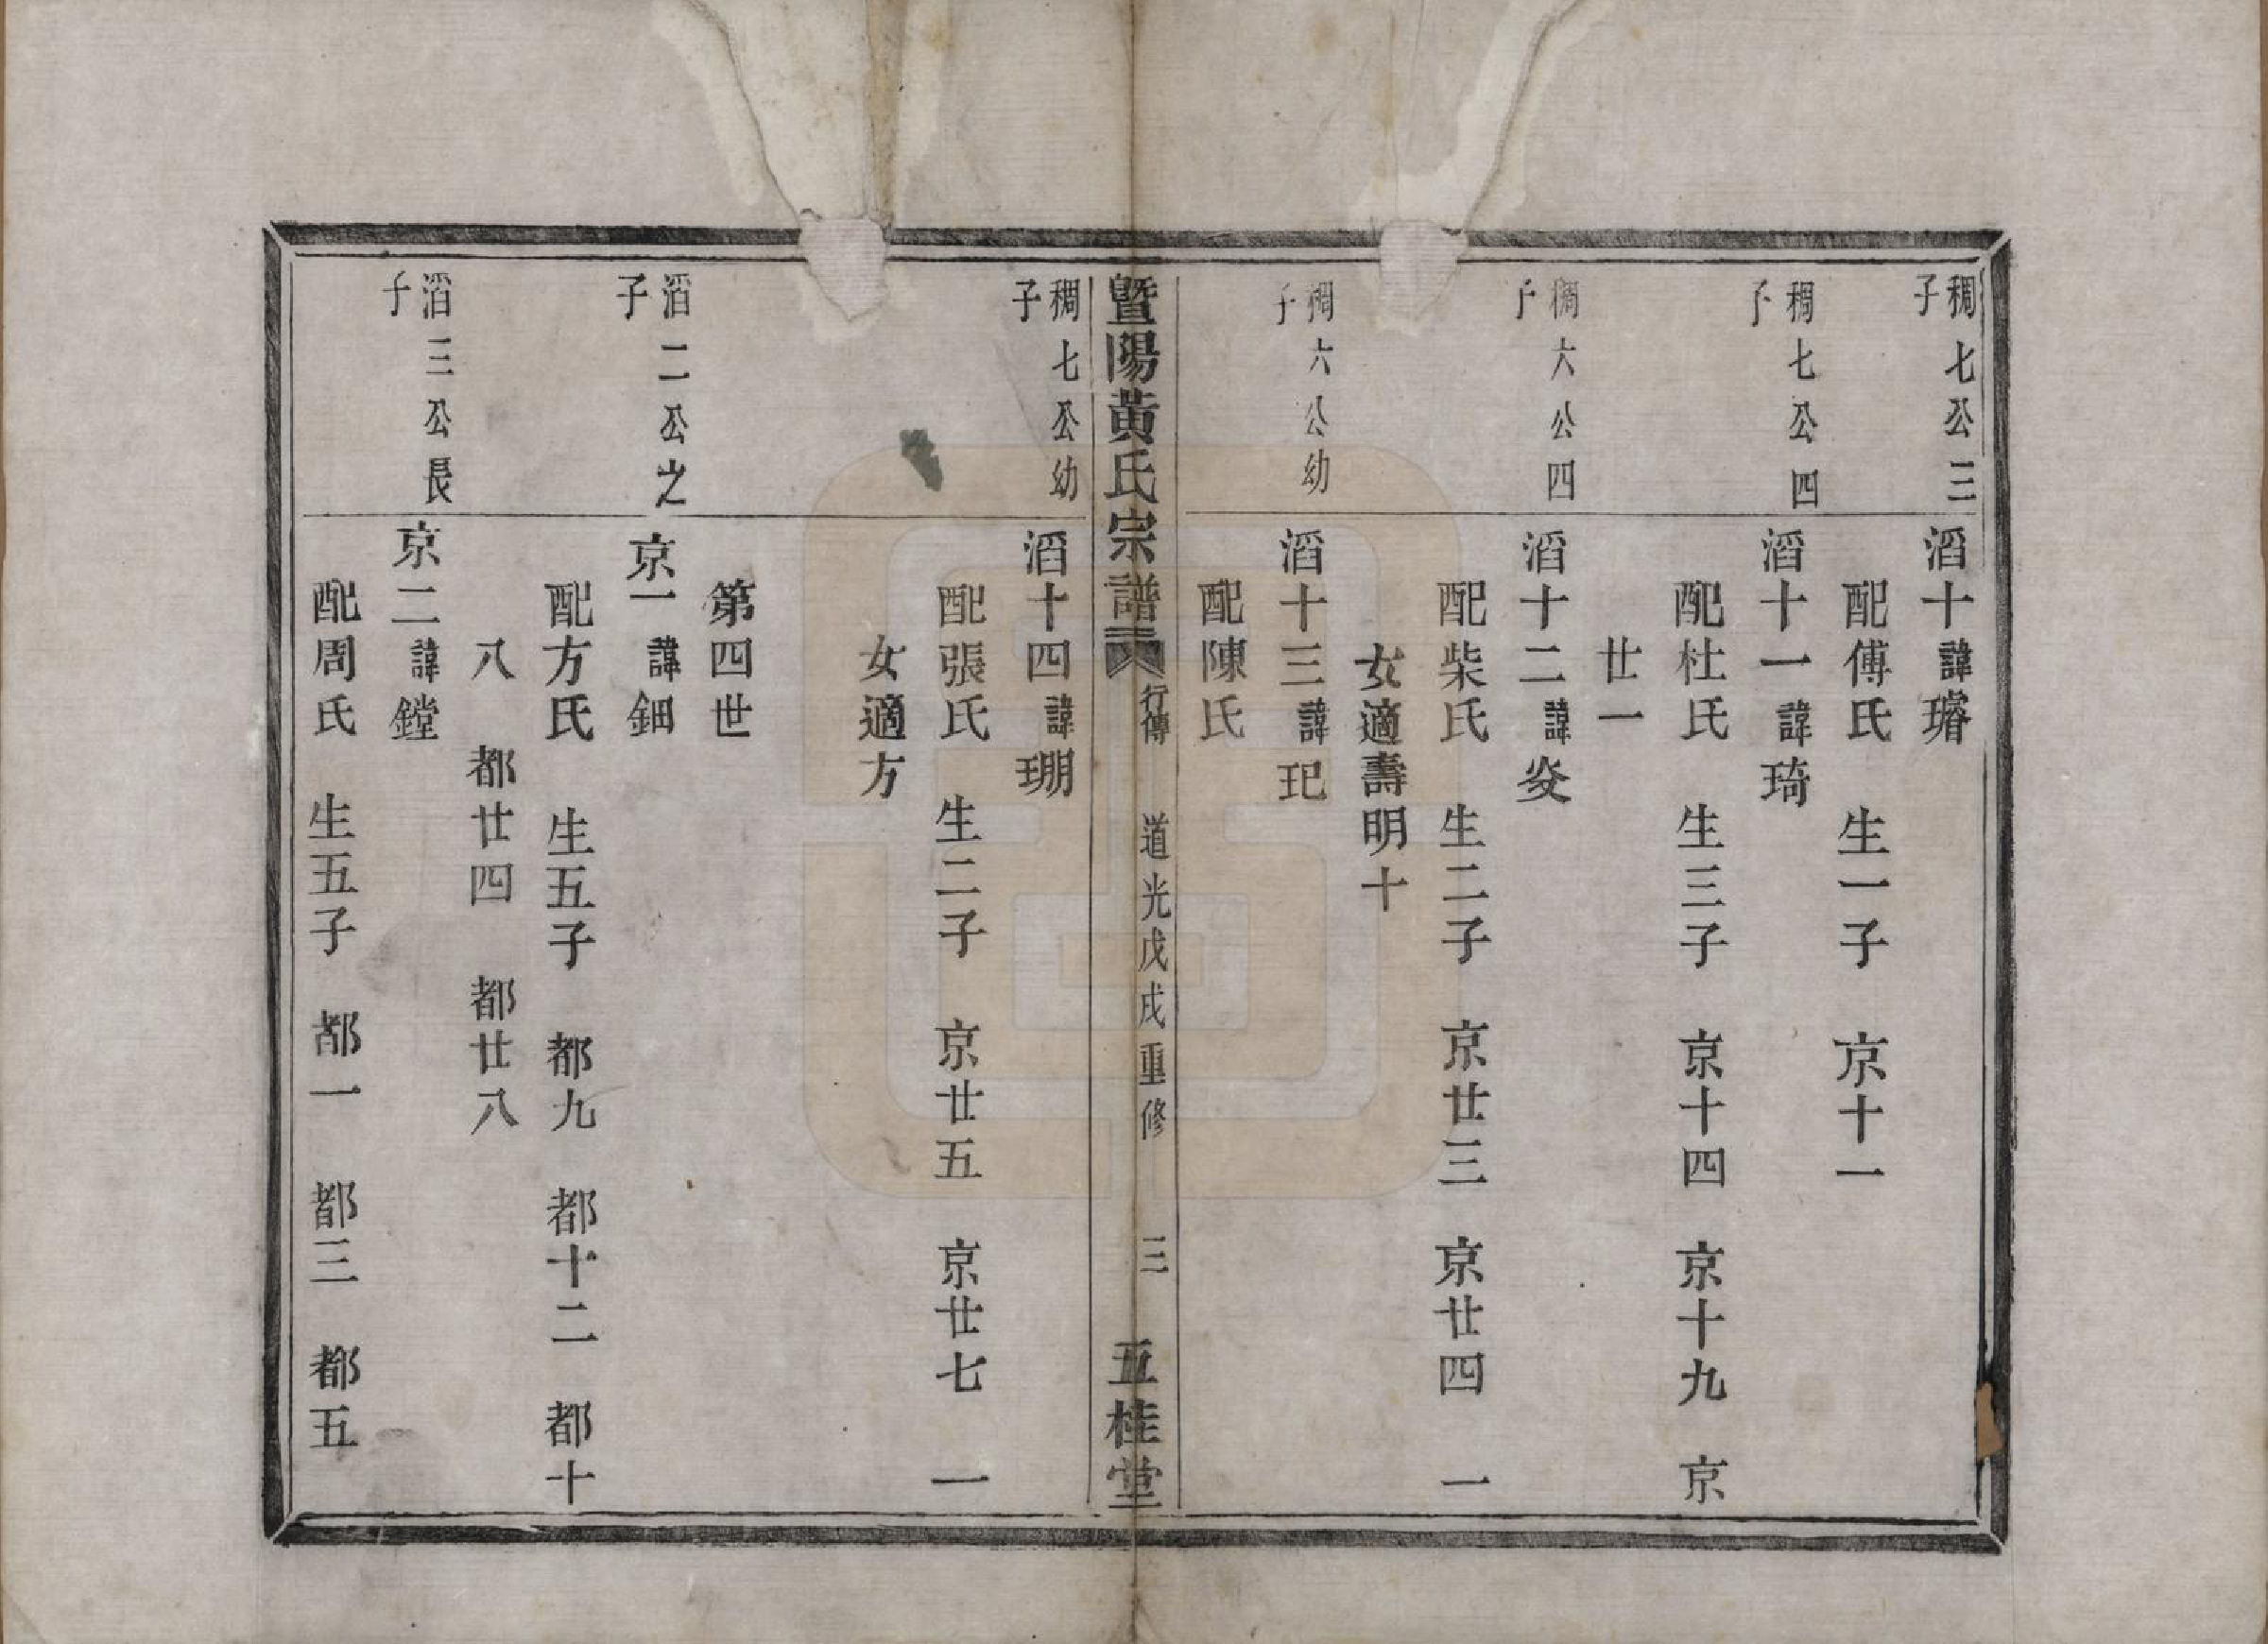 稠七公三
子
滔十諱璿
配傅氏　生一子　京十一
稠七公四
子
滔十一諱琦
配杜氏　生三子　京十四　京十九　京
廿一
稠六公四
子
滔十二諱焱
配柴氏　生二子　京廿三　京廿四　一
女適壽明十
稠六公幼
子
滔十三諱玘
配陳氏
暨陽黃氏宗譜　行傳　道光戊戌重修　三　五桂堂
稠七公幼
子
滔十四諱珊
配張氏　生二子　京廿五　京廿七　一
女適方
第四世
滔二公之
子
京一諱鈿
配方氏　生五子　都九　都十二　都十
八　都廿四　都廿八
滔三公長
子
京二諱鏜
配周氏　生五子　都一　都三　都五